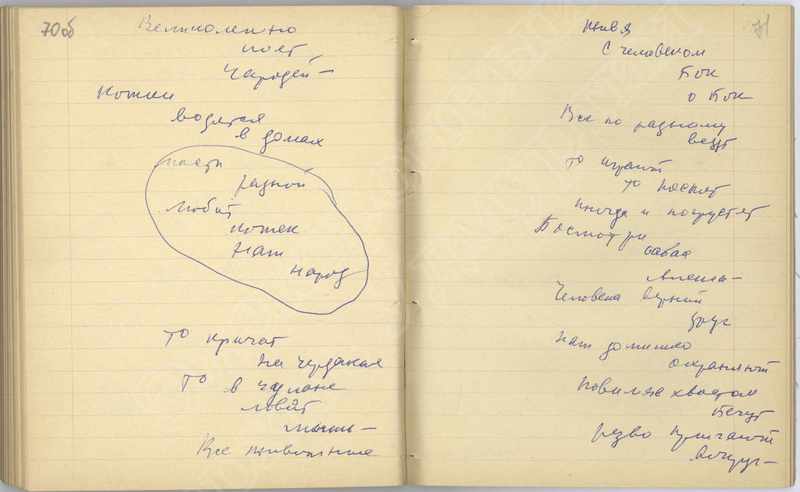 70об
Великолепно
поет
Чародей –
Кошки
водятся
в домах
масти
разной
Любит
кошек
наш
народ
то кричат
на чердаках
то в чулане
ловят
мышь –
Все животные
71
Живя
с человеком
Бок
о Бок
Все по разному
ведут
то играют
то поспят
иногда и погрустят
Посмотри
собака
Человека верный
друг
наш домишко
охраняют
повиляв хвостом
Бегут
резво прыгают
вокруг –